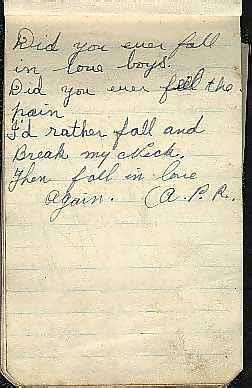 Did you ever fall
in love boys.
Did you ever feel the
pain
I'd rather fall and
Break my Neck.
Then fall in love
again. (A. P. R.